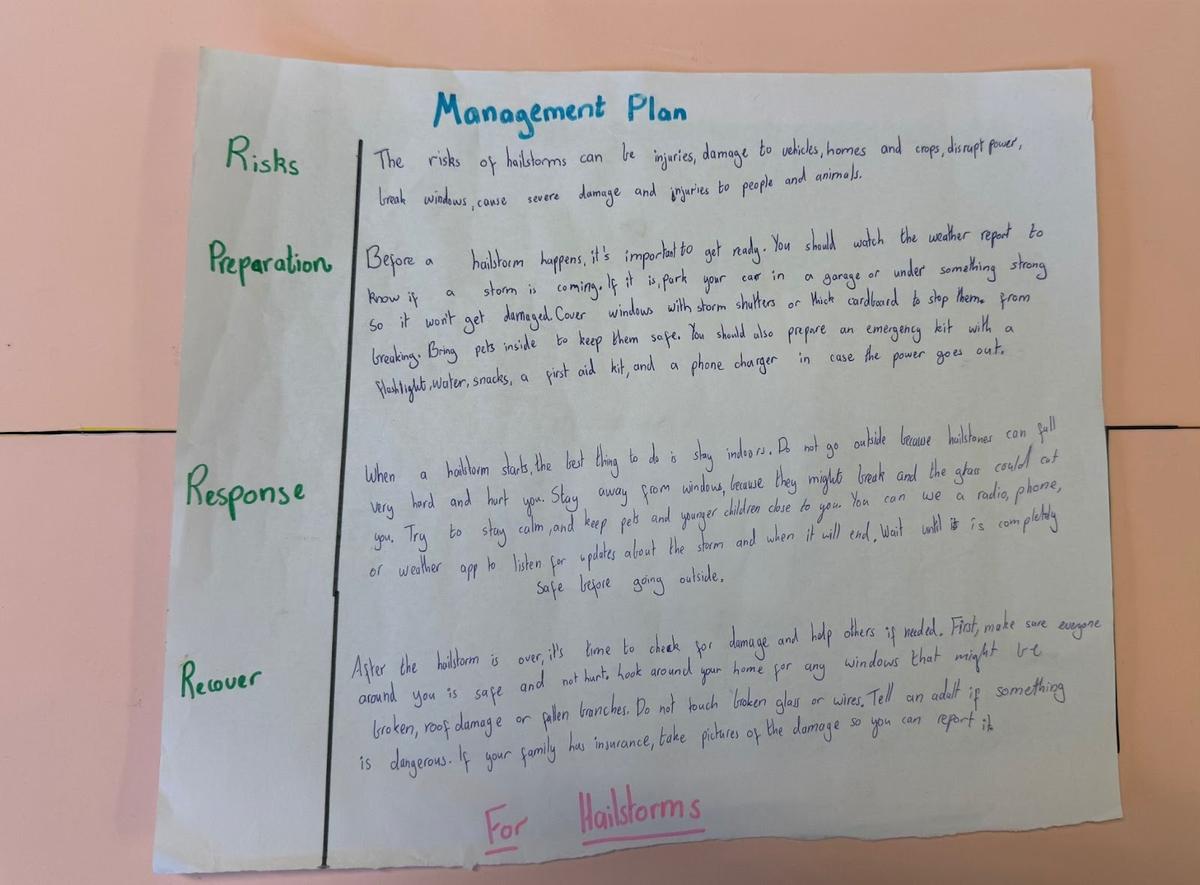 Management Plan
Risks
The risks of hailstorms can be injuries, damage to vehicles, homes and crops, disrupt power,
break windows, cause severe damage and injuries to people and animals.
Preparation
Before a hailstorm happens, it's important to get ready. You should watch the weather report to
know if a storm is coming. If it is, park your car in a garage or under something strong
so it won't get damaged. Cover windows with storm shutters or thick cardboard to stop them from
breaking. Bring pets inside to keep them safe. You should also prepare an emergency kit with a
flashlight, water, snacks, a first aid kit, and a phone charger in case the power goes out.
Response
When a hailstorm starts, the best thing to do is stay indoors. Do not go outside because hailstones can fall
very hard and hurt you. Stay away from windows, because they might break and the glass could cut
you. Try to stay calm, and keep pets and younger children close to you. You can use a radio, phone,
or weather app to listen for updates about the storm and when it will end. Wait until it is completely
safe before going outside.
Recover
After the hailstorm is over, it's time to check for damage and help others if needed. First, make sure everyone
around you is safe and not hurt. Look around your home for any windows that might be
broken, roof damage or fallen branches. Do not touch broken glass or wires. Tell an adult if something
is dangerous. If your family has insurance, take pictures of the damage so you can report it
For Hailstorms